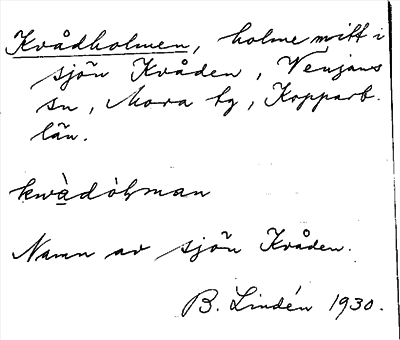 Kvådholmen, holme mitt i
sjön Kvåden, Venjans
sn, Mora tg, Kopparb.
län.
kwàdòḷman
Namn av sjön Kvåden.
B. Lindén 1930.